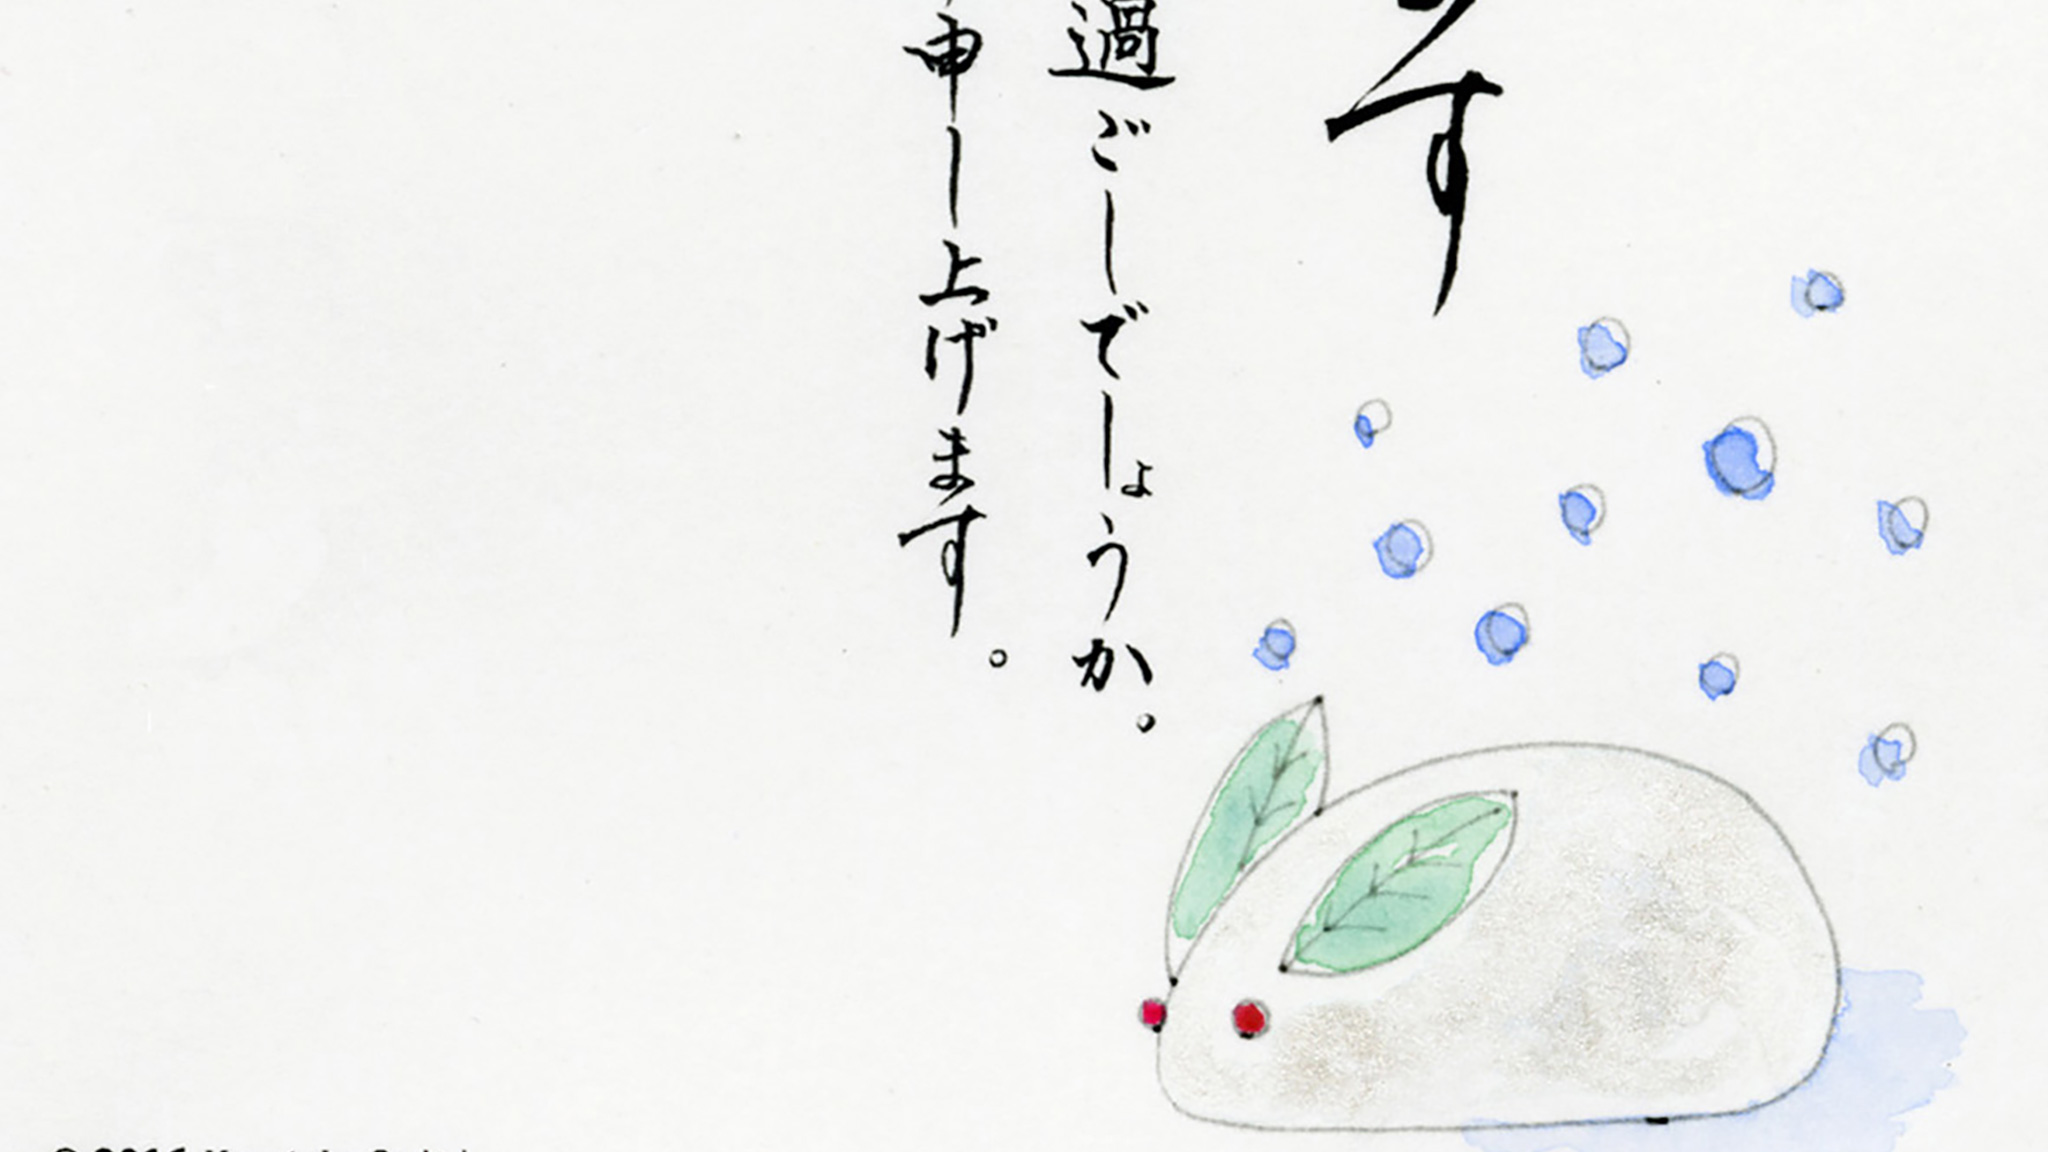 す
過ごしでしょうか。
申し上げます。